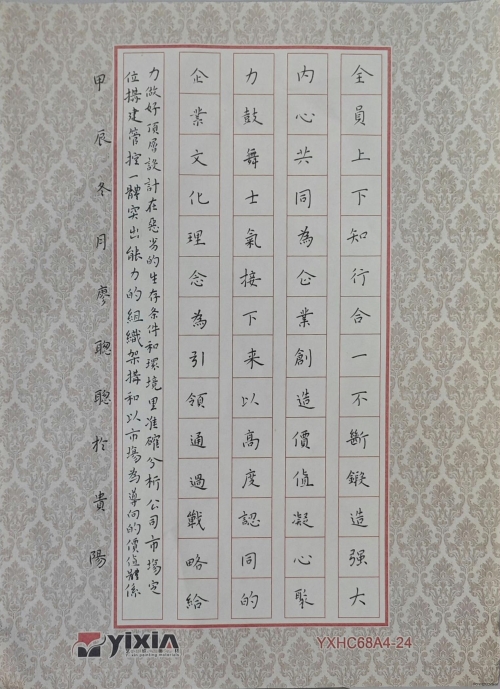 全員上下知行合一不斷鍛造强大
内心共同為企業創造價值凝心聚
力鼓舞士氣接下来以高度認同的
企業文化理念為引領通過戰略給
力做好頂層設計在惡劣的生存条件和環境里准確分析公司市場定
位搭建管控一體突出能力的組織架構和以市場為導向的價值體係
甲辰冬月廖聰聰於貴陽
YIXIN
YXHC68A4-24